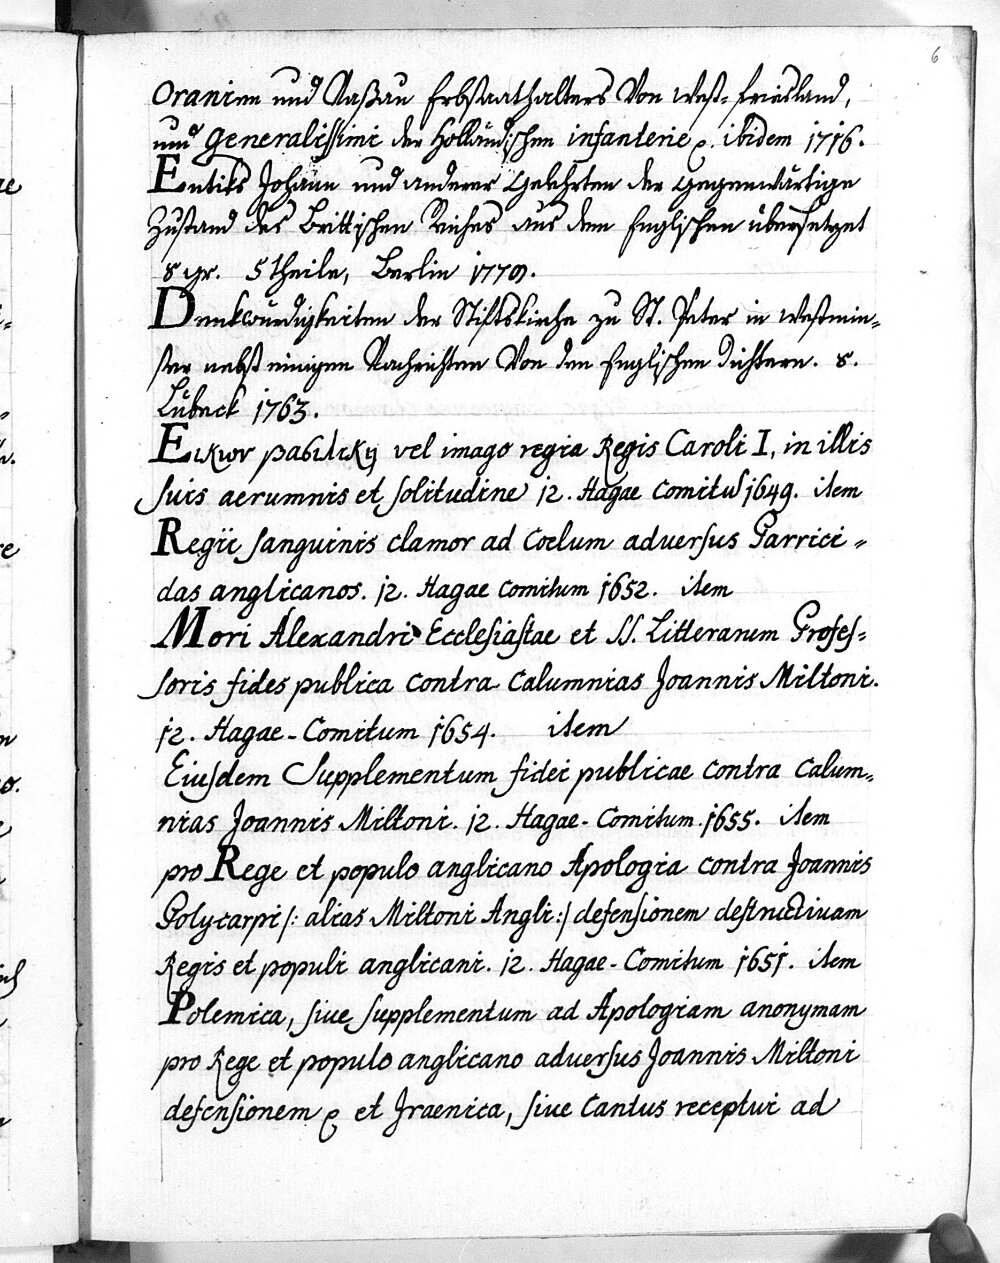 6
Oranien und Naßau Erbstaathalters Von West-Friesland,
und Generalissimi der Holländischen infanterie ꝛc. ibidem 1716.
Enticks Johann und anderer Gelehrten der gegenwärtige
Zustand des Brittischen Reiches aus dem Englischen übersetzet
8 gr. 5 theile, Berlin 1779.
Denkwürdigkeiten der Stiftskirche zu St. Peter in Westmin-
ster nebst einigen Nachrichten Von den Englischen Dichtern. 8.
Lübeck 1763.
Εικων βασιλικη vel imago regia Regis Caroli I, in illis
suis aerumnis et solitudine 12. Hagae Comitu 1649. item
Regii sanguinis clamor ad Coelum adversus Parrici-
das anglicanos. 12. Hagae Comitum 1652. item
Mori Alexandri Ecclesiastae et SS. Litterarum Profes-
soris fides publica contra Calumnias Joannis Miltoni.
12. Hagae-Comitum 1654. item
Eiusdem Supplementum fidei publicae contra Calum-
nias Joannis Miltoni. 12. Hagae-Comitum 1655. item
pro Rege et populo anglicano Apologia contra Joannis
Polycarpi /: alias Miltoni Angli :/ defensionem destructiuam
Regis et populi anglicani. 12. Hagae-Comitum 1651. item
Polemica, siue supplementum ad Apologiam anonymam
pro Rege et populo anglicano aduersus Joannis Miltoni
defensionem ꝛc et Jraenica, siue Cantus receptui ad